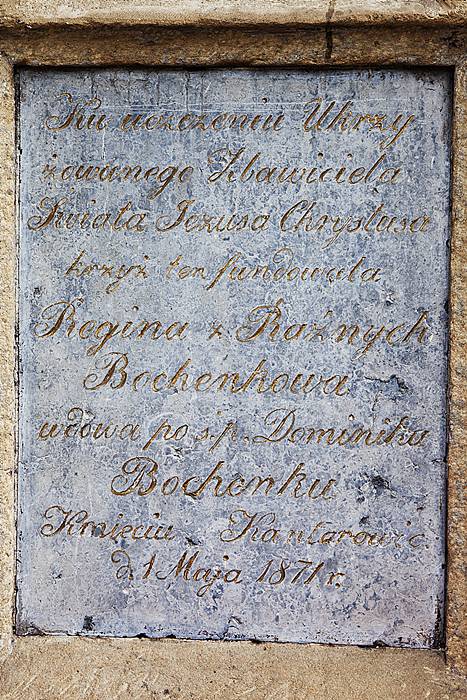 Ku uczczeniu Ukrzy
żowanego Zbawiciela
Świata Jezusa Chrystusa
krzyż ten fundowała
Regina z Raźnych
Bochenkowa
wdowa po ś.p. Dominiku
Bochenku
Kmieciu Kantorowic
d. 1 Maja 1871 r.